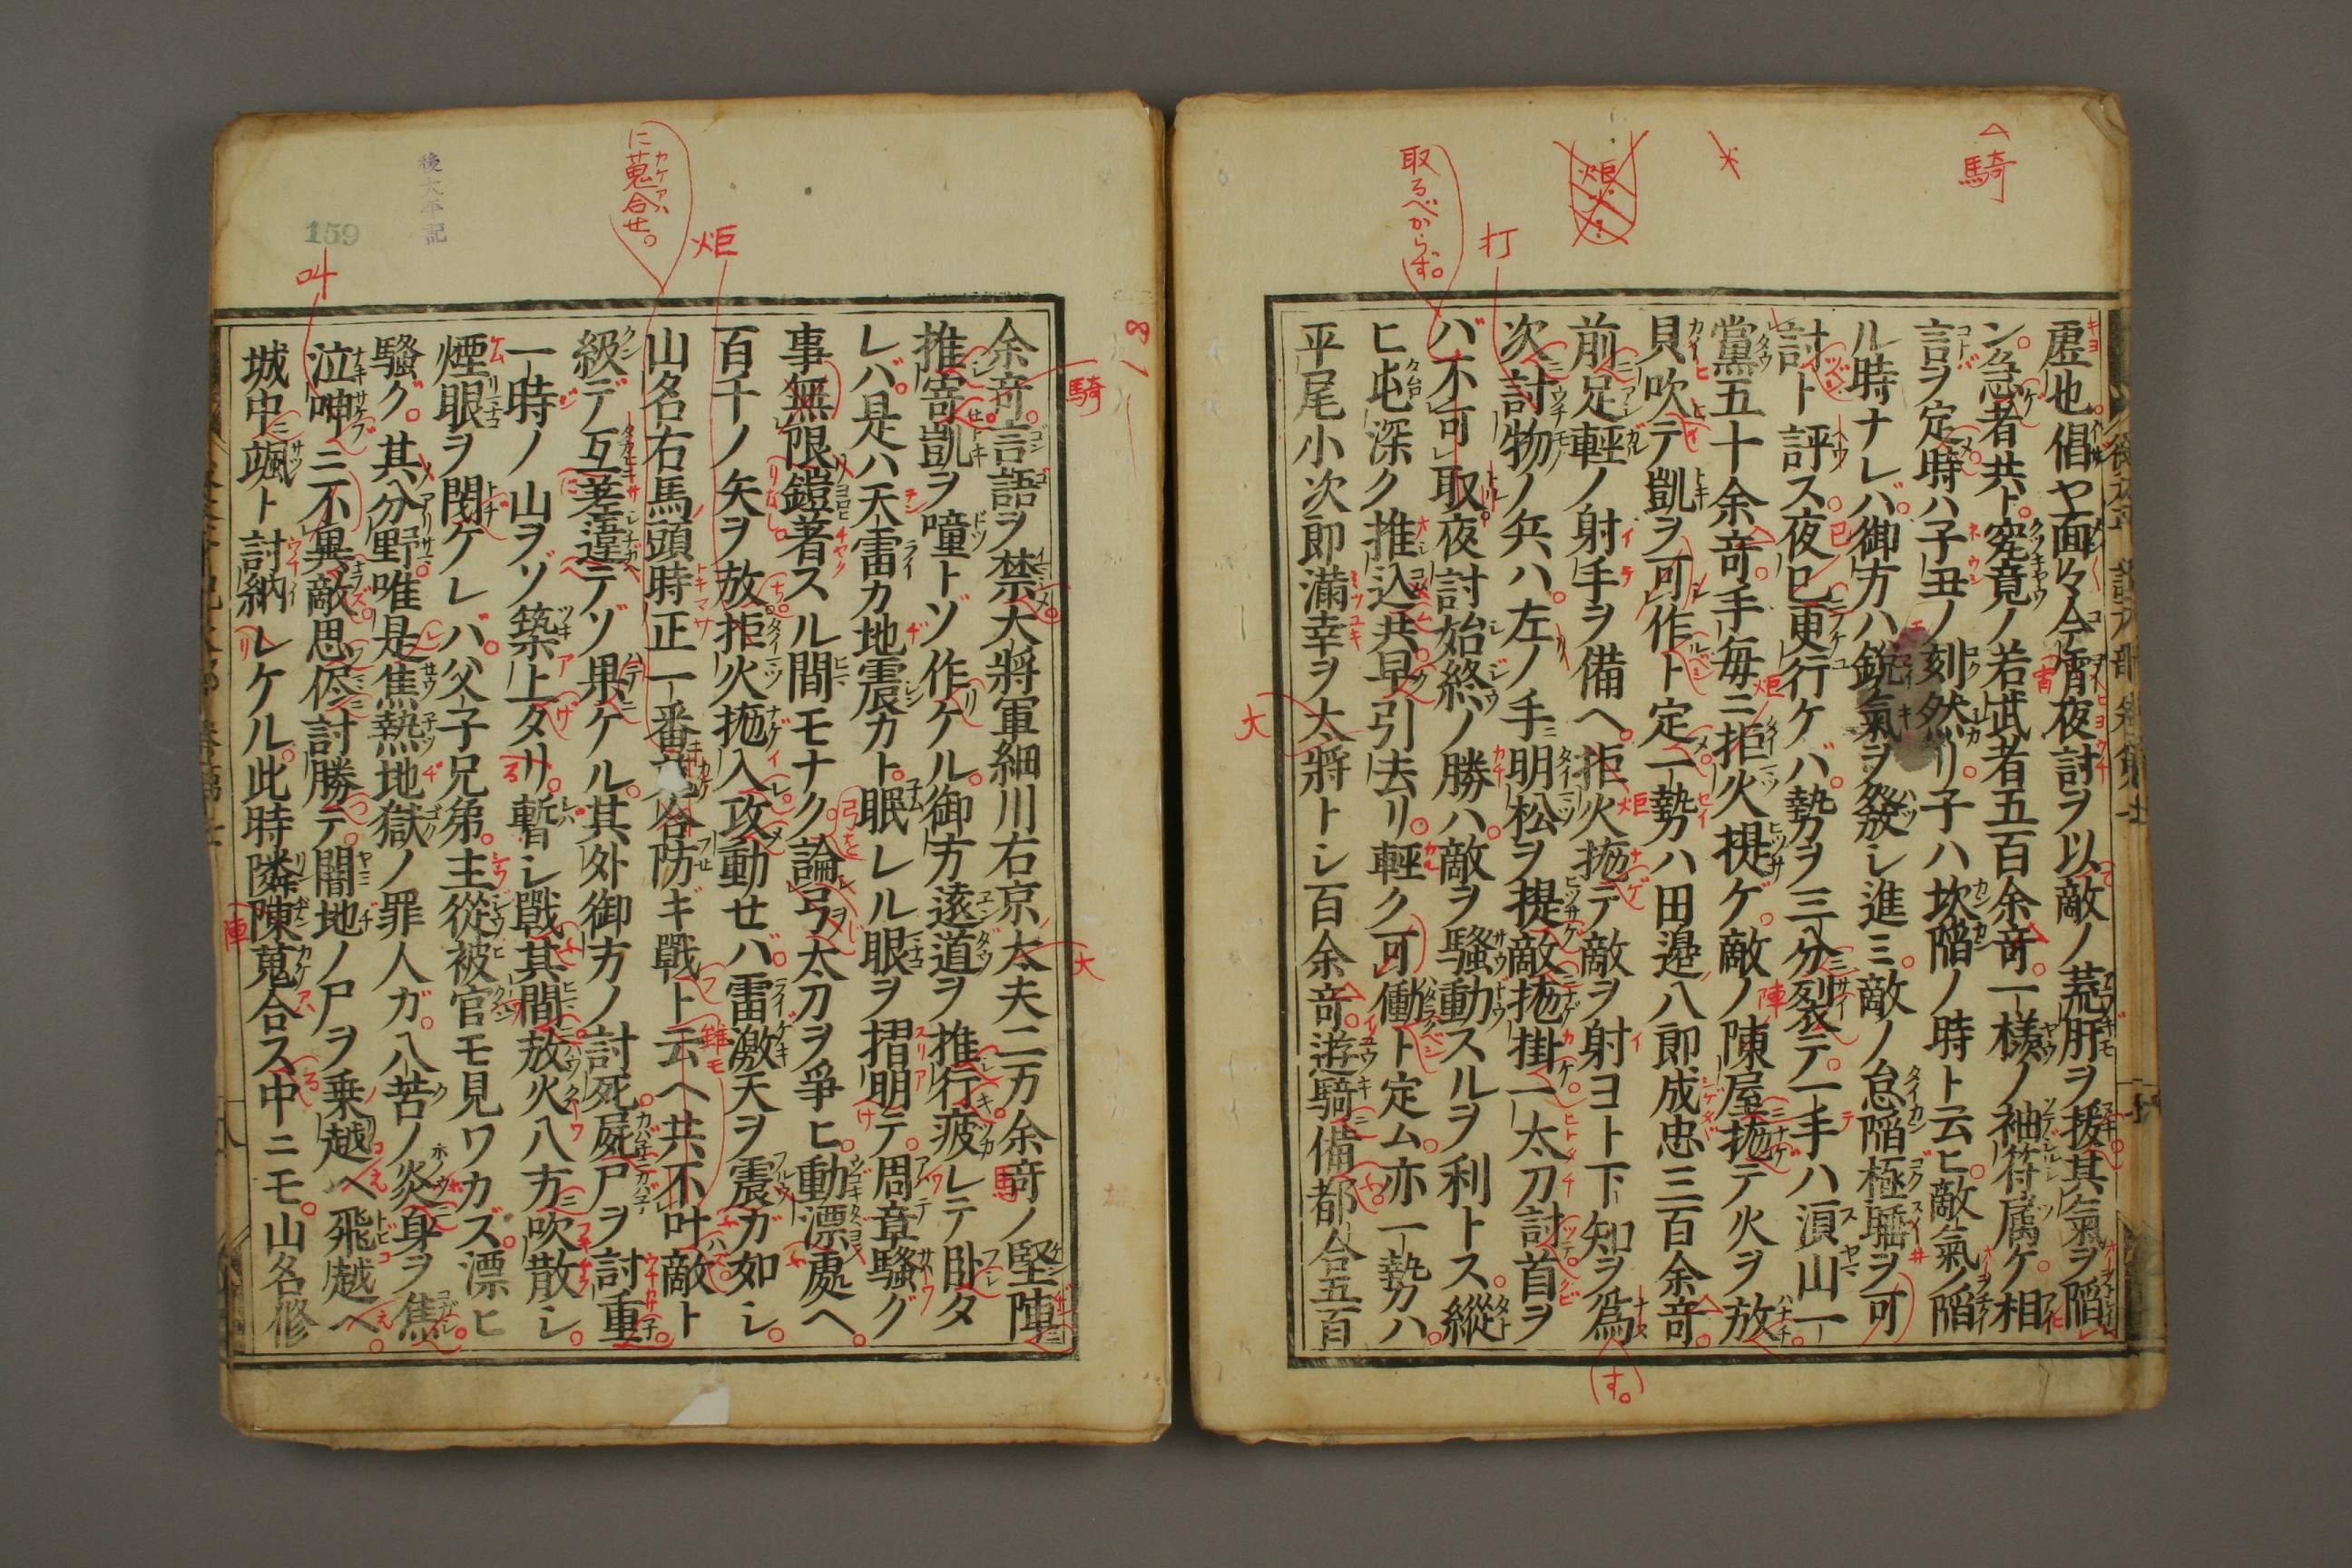 虚也倡ヤ面々今霄夜討ヲ以敵ノ荒肝ヲ拔其氣ヲ陷
ン急者共ト究竟ノ若武者五百余竒一樣ノ袖符属ケ相
言ヲ定時ハ子丑ノ刻然リ子ハ坎陷ノ時ト云ヒ敵氣ノ陷
ル時ナレバ御方ハ鋭氣ヲ發レ進ミ敵ノ怠陷極睡ヲ可
討ト評ス夜已更行ケバ勢ヲ三分裂テ一手ハ湏山一
黨五十余竒手毎ニ拒火提ゲ敵ノ陳屋拖テ火ヲ放
貝吹テ凱ヲ可作ト定一勢ハ田邉八郎成忠三百余竒
前足輕ノ射手ヲ備ヘ拒火拖テ敵ヲ射ヨト下知ヲ爲
次討物ノ兵ハ左ノ手明松ヲ提敵拖掛一太刀討首ヲ
バ不可取夜討始終ノ勝ハ敵ヲ騷動スルヲ利トス縱
ヒ屯深ク推込共早引去リ輕ク可働ト定ム亦一勢ハ
平尾小次郎滿幸ヲ太將トシ百余竒遊騎備都合五百
余竒言語ヲ禁大將軍細川右京太夫二万余竒ノ堅陣
推寄凱ヲ噇トゾ作ケル御方遠道ヲ推行疲レテ卧タ
レバ是ハ天雷カ地震カト眠レル眼ヲ摺明テ周章騷グ
事無限鎧著スル間モナク論弓太刀ヲ爭ヒ動漂處ヘ
百千ノ矢ヲ放拒火拖入攻動せバ雷激天ヲ震ガ如シ
山名右馬頭時正一番合防ギ戰ト云ヘ共不叶敵ト
級デ互差違テゾ果ケル其外御方ノ討死屍尸ヲ討重
一時ノ山ヲゾ築上タリ暫シ戰其間放火八方吹散シ
煙眼ヲ閉ケレバ父子兄弟主從被官モ見ワカズ漂ヒ
騷グ其分野唯是焦熱地獄ノ罪人ガ八苦ノ炎身ヲ焦
泣呻ニ不異敵思侭討勝テ闇地ノ尸ヲ乗越ヘ飛越ヘ
城中颯ト討納レケル此時隣陳蒐合ス中ニモ山名修
騎
取るべからず。
打
炬
に蒐合せ。
叫
後太平記
159
81
騎
大
大